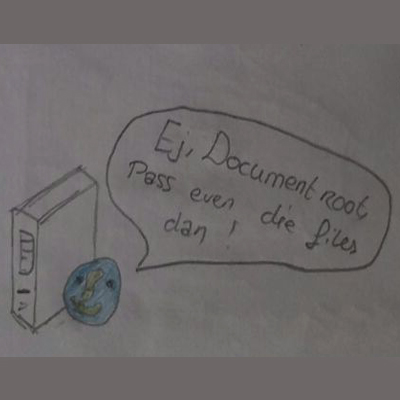 Ej, Document root,
Pass even die files
dan !